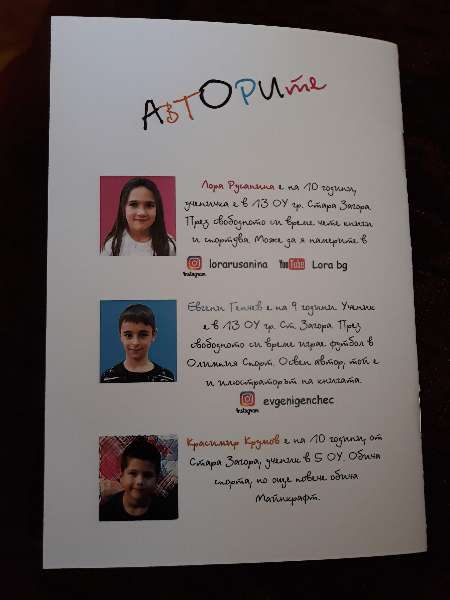 АВТОРИте
Лора Русанина е на 10 години,
ученичка е в 13 ОУ гр. Стара Загора.
През свободното си време чете книги
и спортува. Може да я намерите в
Instagram lorarusanina YouTube Lora bg
Евгени Генчев е на 9 години. Ученик
е в 13 ОУ гр. Ст. Загора. През
свободното си време играе футбол в
Олимпия Спорт. Освен автор, той е
и илюстраторът на книгата.
Instagram evgenigenchec
Красимир Крумов е на 10 години, от
Стара Загора, ученик в 5 ОУ. Обича
спорта, но още повече обича
Майнкрафт.